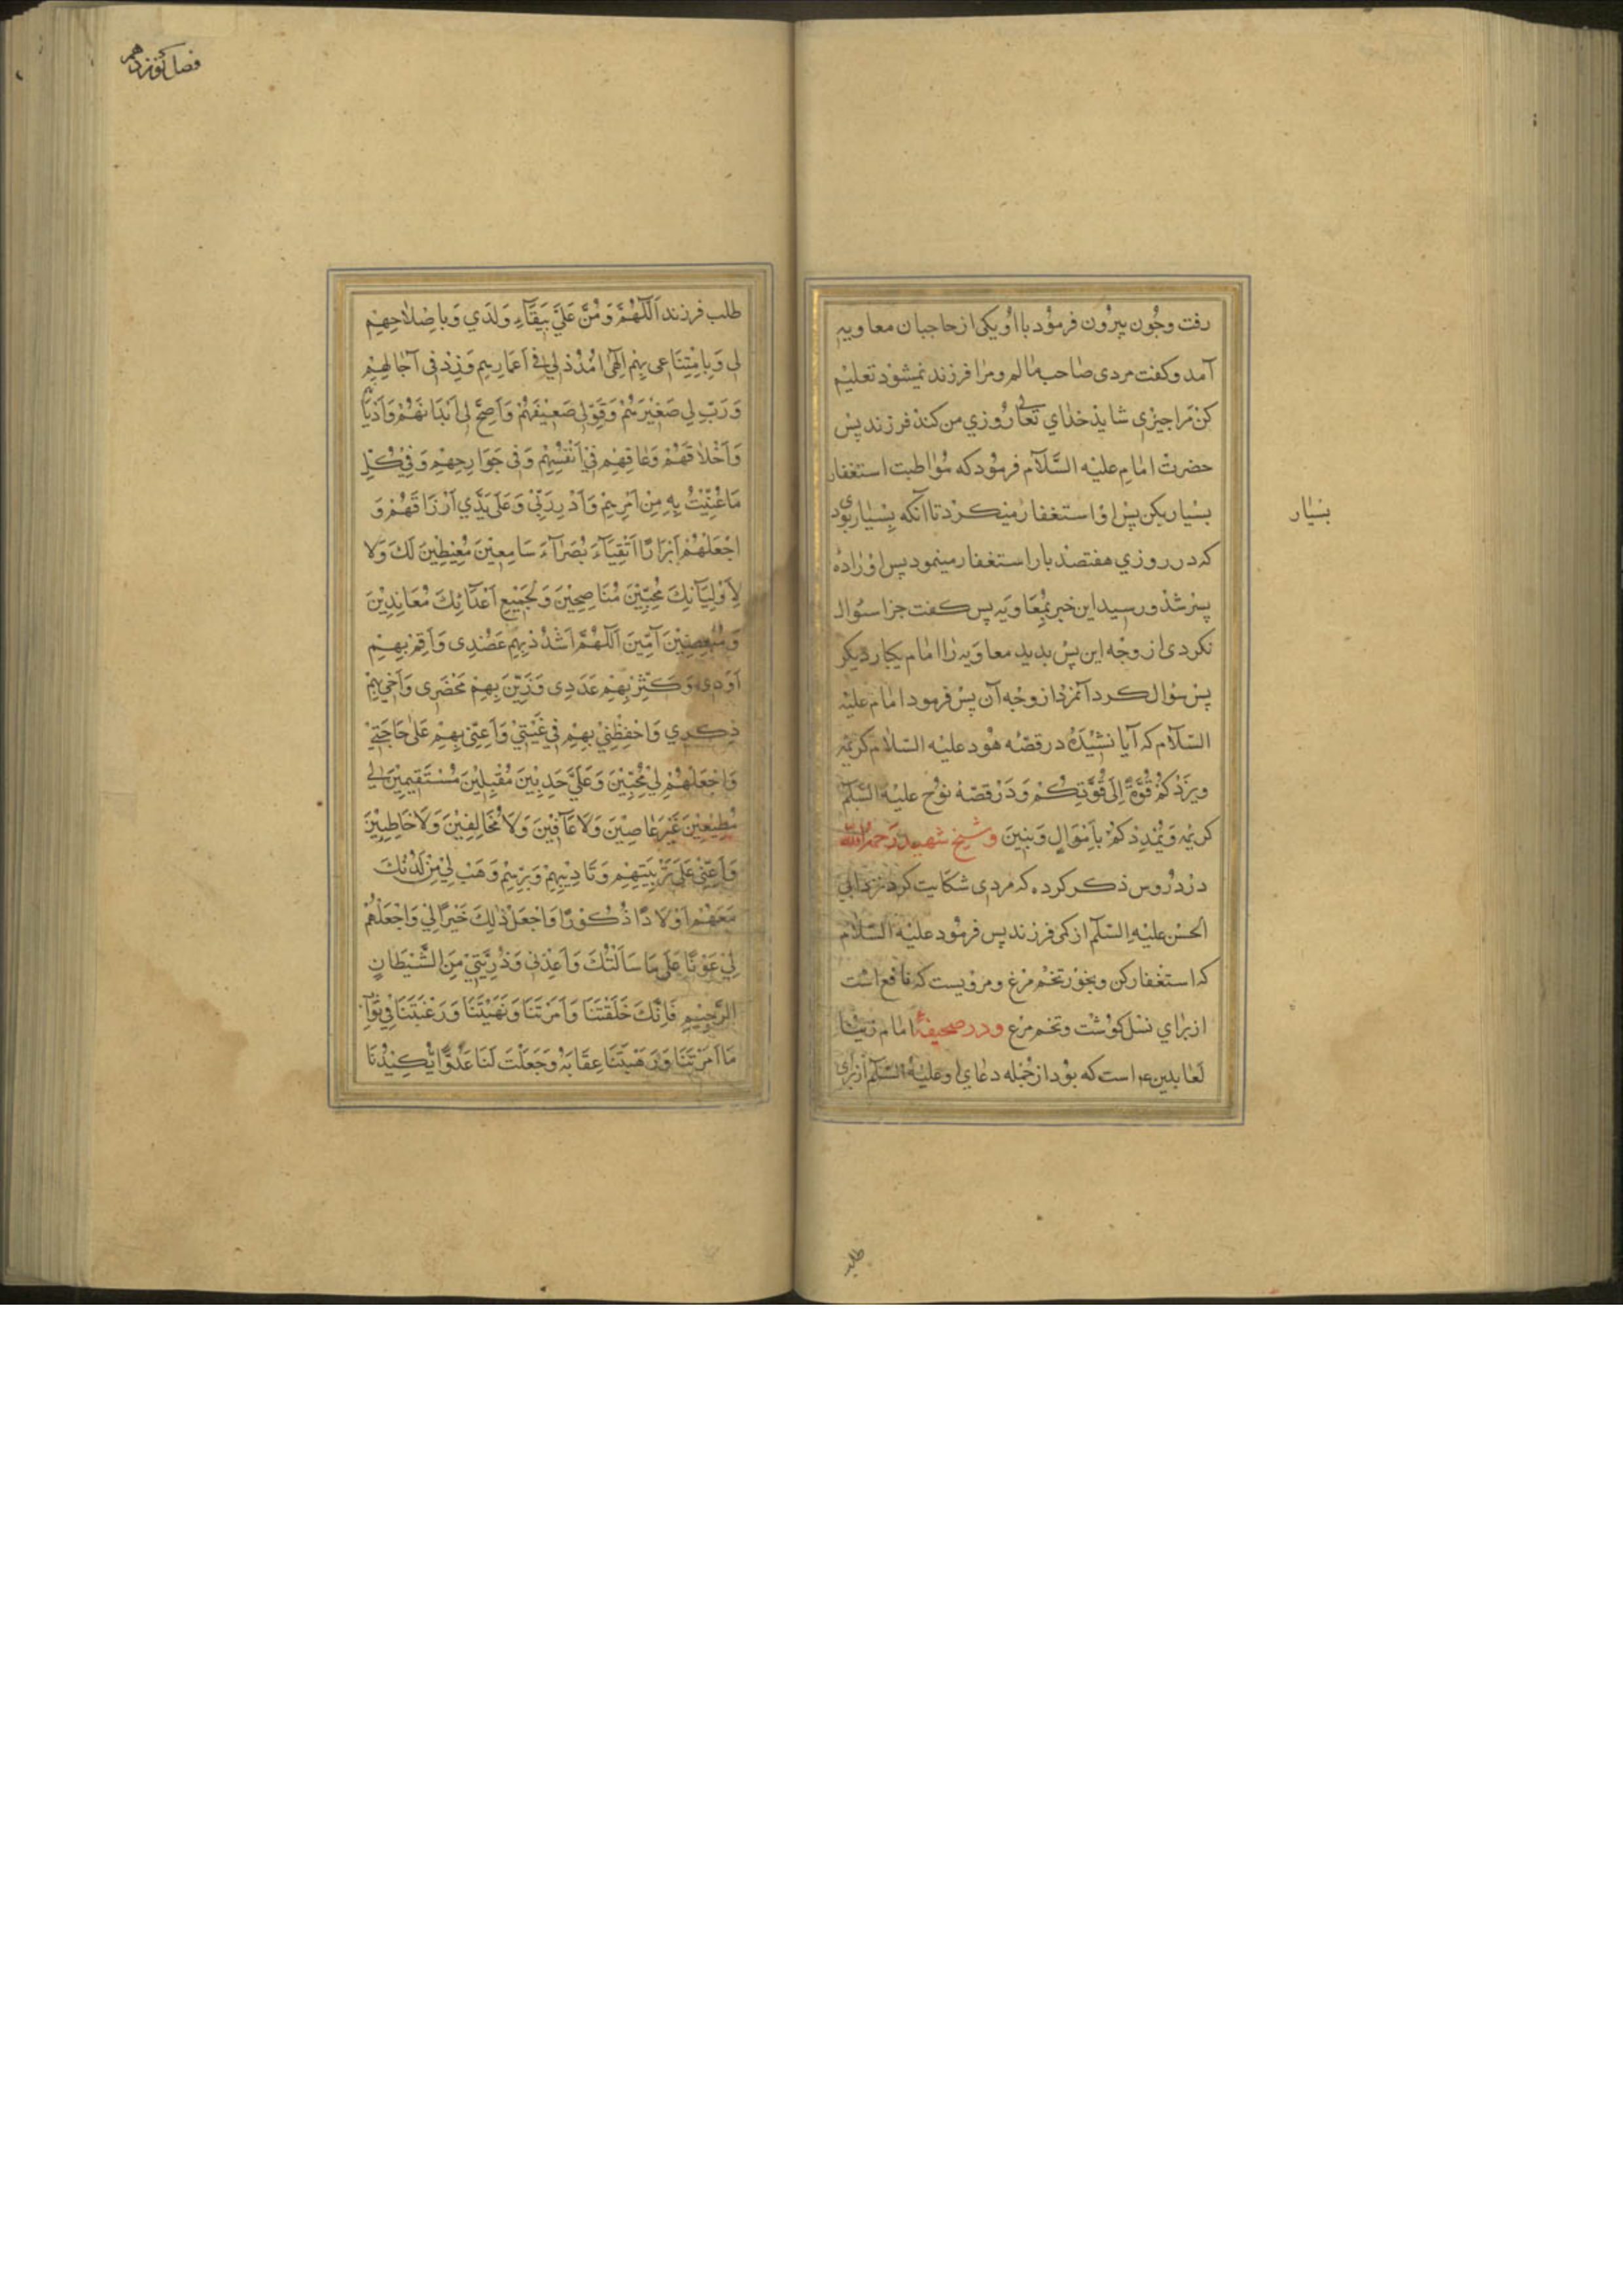 رفت وچون بیرون فرمود با او یکی از حاجبان معاویه
آمد و کفت مردی صاحب مالم و مرا فرزند نمیشود تعلیم
کن مرا چیزی شاید خدای تعالی روزی من کند فرزند پس
حضرت امام علیه السلام فرمود که مواظبت استغفار
بسیار بکن پس او استغفار میکرد تا آنکه بسیار بودی
بسیار
که در روزی هفتصد بار استغفار مینمود پس او را ده
پسر شد و رسید این خبر بمعاویه پس کفت چرا سؤال
نکردی از وجه این پس بدید معاویه را امام یکبار دیکر
پس سؤال کرد آنمرد از وجه آن پس فرمود امام علیه
السلام که آیا نشیده در قصه هود علیه السلام کریمه
ویزدکم قوة الی قوتکم و در قصه نوح علیه السلم
کریمه ویمددکم باموال وبنین و شیخ شهید رحمه الله
در دروس ذکر کرده که مردی شکایت کرد نزد ابی
الحسن علیه السلم از کمی فرزند پس فرمود علیه السلام
که استغفار کن و بخور تخم مرغ و مرویست که نافع است
از برای نسل کوشت و تخم مرغ و در صحیفۀ امام
لعابدین ع است که بود از جمله دعای او علیه السلم از برای
طلب
فصل نوزدهم
طلب فرزند اَللّهُمَّ وَمُنَّ عَلَيَّ بِبَقَآءِ وَلَدي وَبِاِصْلاحِهِمْ
لي وَبِاِمْتِناعي بِهِمْ اِلهي اُمْدُدْ لي في اَعْمارِهِم وَزِدْ في آجالِهِمْ
وَرَبِّ لي صَغيرَهُمْ وَقَوِّ لي ضَعيفَهُمْ وَاَصِحَّ لي اَبْدانَهُمْ وَاَدْيانَهُمْ
وَاَخْلاقَهُمْ وَعافِهِمْ في اَنْفُسِهِمْ وَفي جَوارِحِهِمْ وَفي كُلِّ
ما عُنيتُ بِهِ مِنْ اَمْرِهِمْ وَاَدْرِرْ لي وَعَلى يَدَيَّ اَرْزاقَهُمْ وَ
اجْعَلْهُمْ اَبْرارًا اَتْقِيآءَ بُصَرآءَ سامِعينَ مُطيعينَ لَكَ وَلا
لِاَوْلِيآئِكَ مُحِبّينَ مُناصِحينَ وَلِجَميعِ اَعْدآئِكَ مُعانِدينَ
وَمُبْغِضينَ آمّينَ اَللّهُمَّ اشْدُدْ بِهِمْ عَضُدي وَاَقِمْ بِهِمْ
اَوَدي وَكَثِّرْ بِهِمْ عَدَدي وَزَيِّنْ بِهِمْ مَحْضَري وَاَحْيِ بِهِمْ
ذِكْري وَاحْفِظْني بِهِمْ في غَيْبَتي وَاَعِنّي بِهِمْ عَلى حاجَتي
وَاجْعَلْهُمْ لي مُحِبّينَ وَعَلَيَّ حَدِبينَ مُقْبِلينَ مُسْتَقيمينَ لي
مُطيعينَ غَيْرَ عاصينَ وَلا عآقّينَ وَلا مُخالِفينَ وَلا خاطِئينَ
وَاَعِنّي عَلى تَرْبِيَتِهِمْ وَتاْديبِهِمْ وَبِرِّهِمْ وَهَبْ لي مِنْ لَدُنْكَ
مَعَهُمْ اَوْلادًا ذُكُورًا وَاجْعَلْ ذلِكَ خَيْرًا لي وَاجْعَلْهُمْ
لي عَوْنًا عَلى ما سَاَلْتُكَ وَاَعِذْني وَذُرِّيَّتي مِنَ الشَّيْطانِ
الرَّجيمِ فَاِنَّكَ خَلَقْتَنا وَاَمَرْتَنا وَنَهَيْتَنا وَرَغَّبْتَنا في ثَوابِ
ما اَمَرْتَنا وَرَهَّبْتَنا عِقابَهُ وَجَعَلْتَ لَنا عَدُوًّا يَكيدُنا